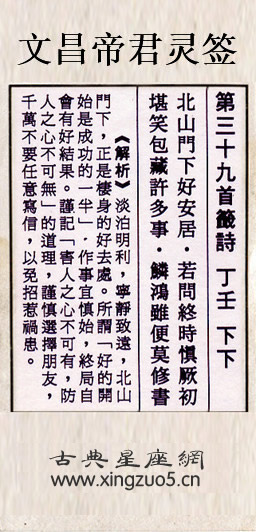 文昌帝君灵签
第三十九首籤詩　丁壬　下下
北山門下好安居．若問終時慎厥初
堪笑包藏許多事．鱗鴻雖便莫修書
《解析》淡泊明利，寧靜致遠，北山
門下，正是棲身的好去處。所謂「好的開
始是成功的一半」．作事宜慎始，終局自
會有好結果。謹記「害人之心不可有，防
人之心不可無」的道理，謹慎選擇朋友，
千萬不要任意寫信，以免招惹禍患。
古典星座網
www.xingzuo5.cn